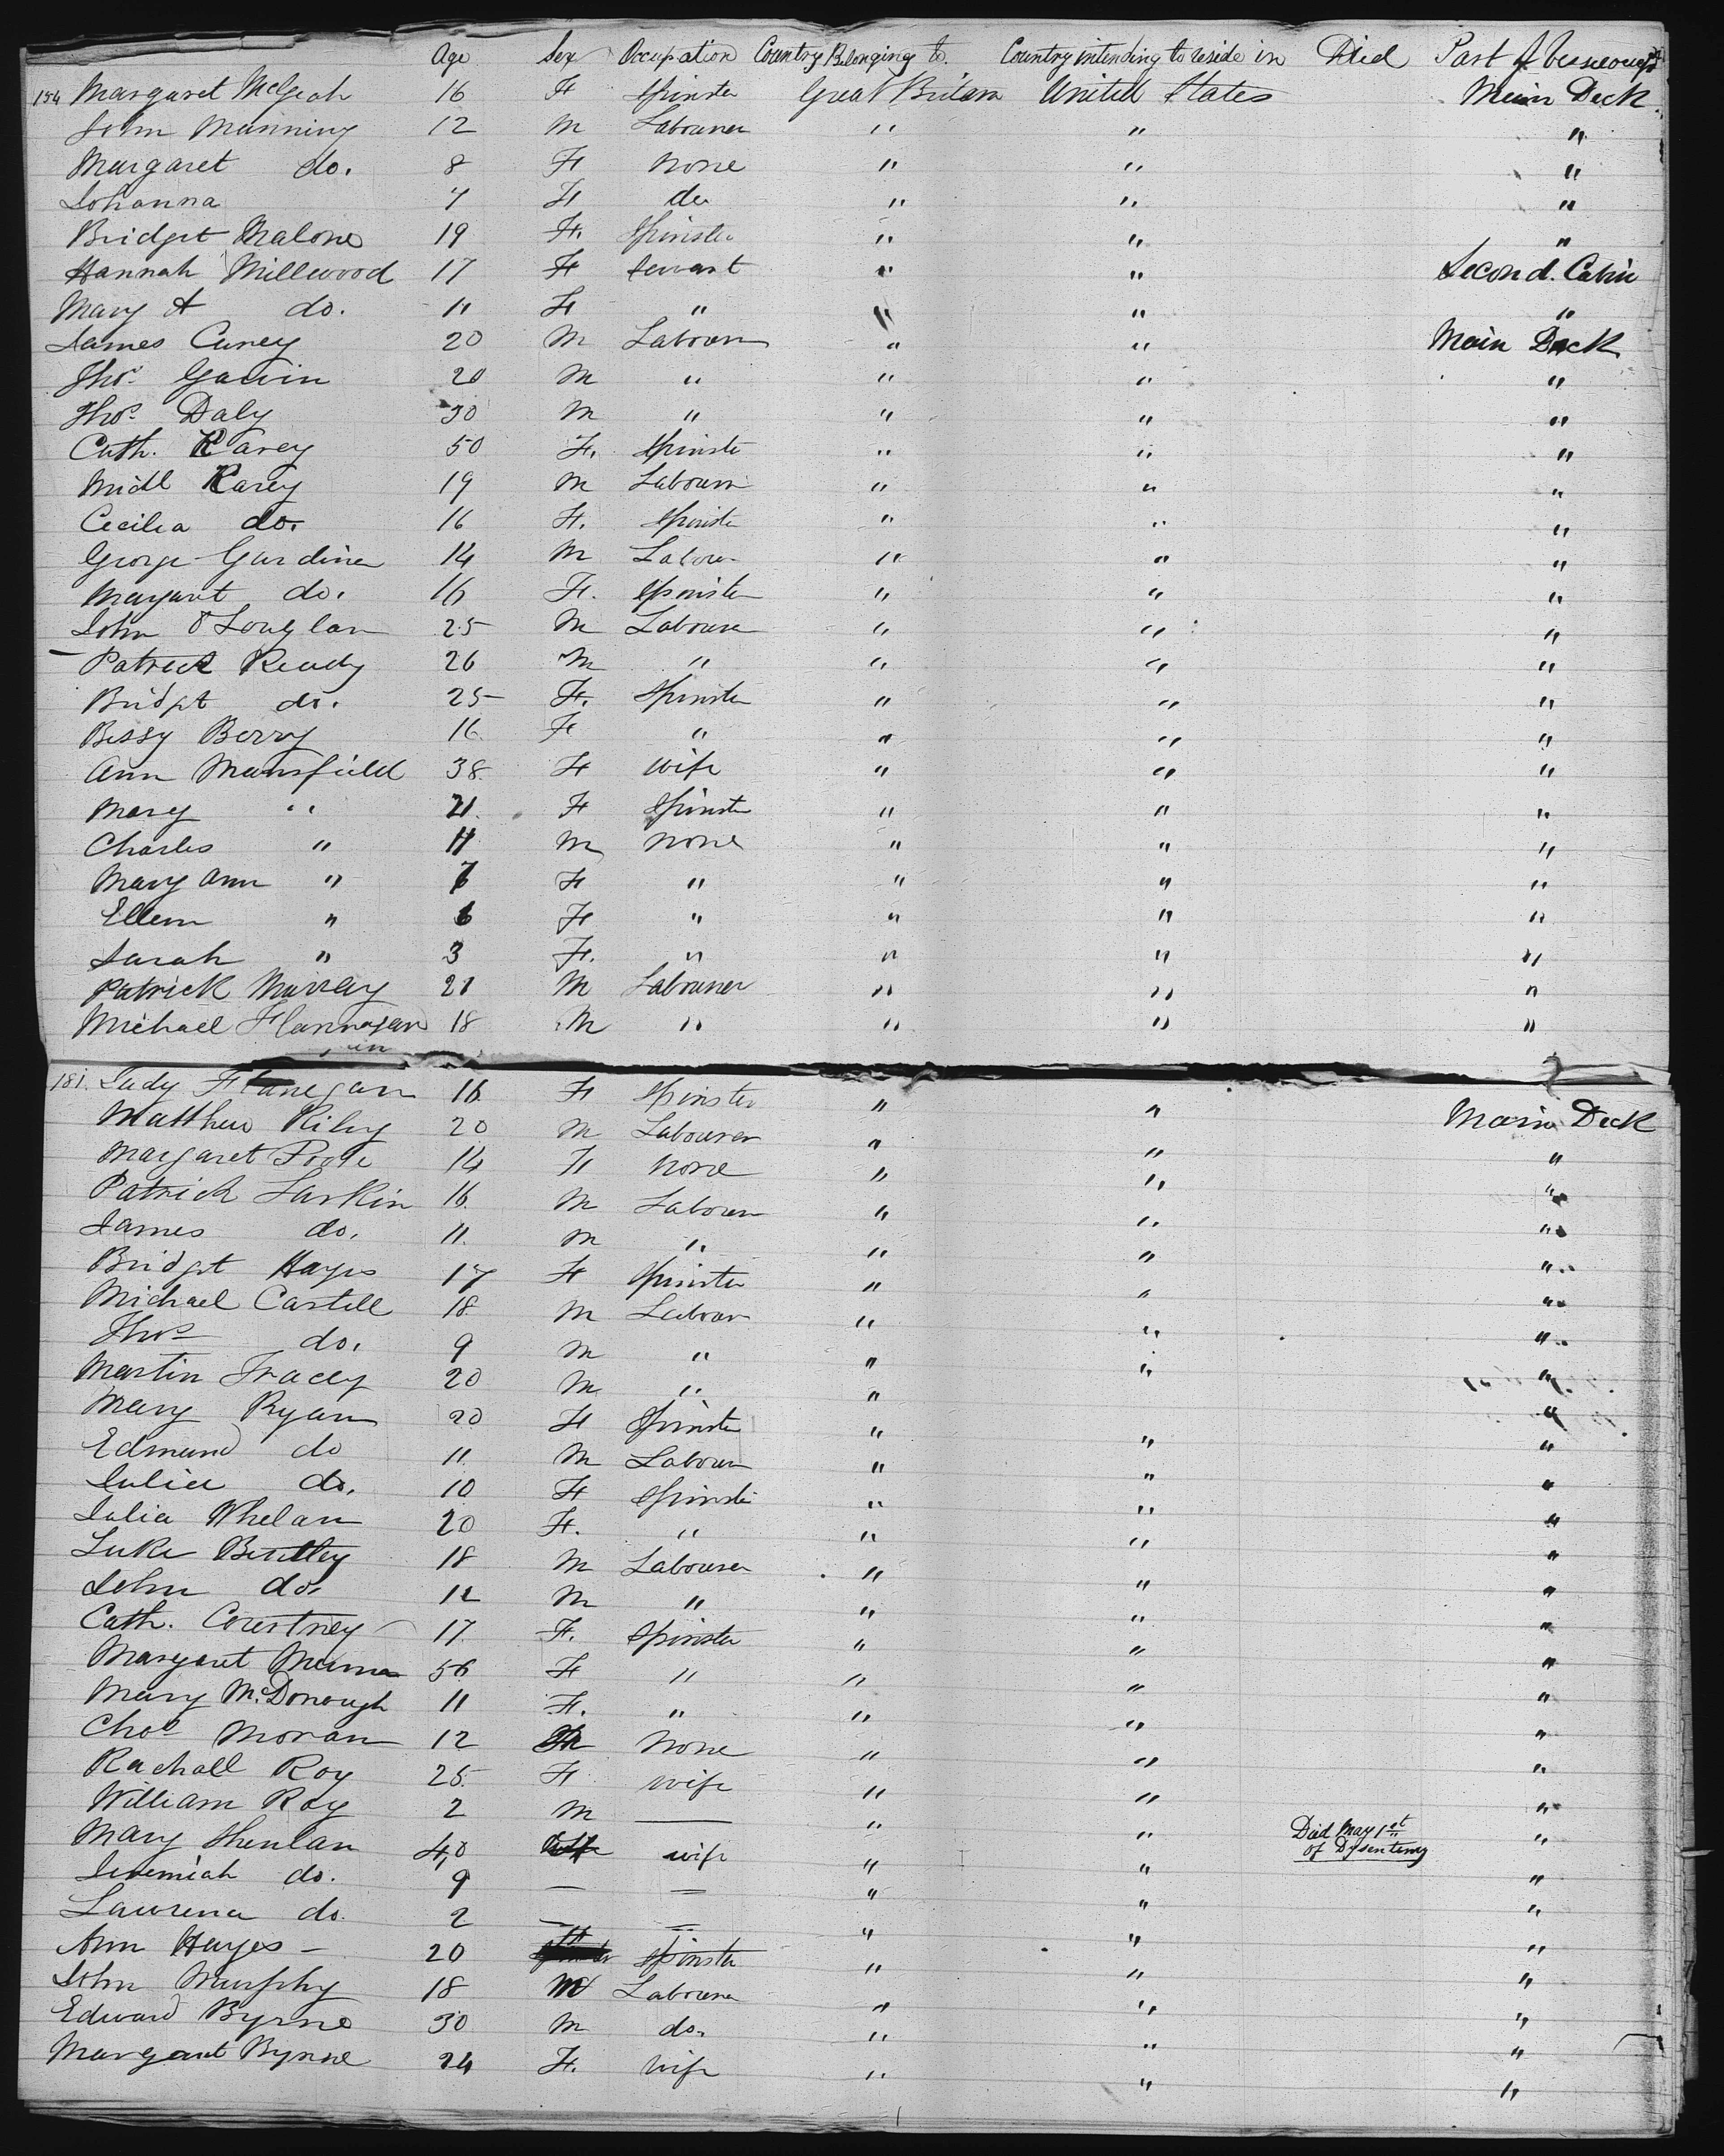 Age Sex Occupation Country Belonging to. Country intending to reside in Died Part of Vessel occup.d
154 Margaret McGeah 16 F Spinster Great Britain United States Main Deck
John Manning 12 M Labourer " " "
Margaret do. 8 F None " " "
Johanna 7 F do " " "
Bridget Malone 19 F. Spinster " " "
Hannah Millwood 17 F Servant " " Second. Cabin
Mary A do. 11 F " " " "
James Carey 20 M Labourer " " Main Deck
Thos. Gavin 20 M " " " "
Thos. Daly 30 M " " " "
Cath. Karey 50 F. Spinster " " "
Michl Karey 19 M Labourer " " "
Cecilia do. 16 F. Spinster " " "
George Gardiner 14 M Labour " " "
Margaret do. 16 F. Spinster " " "
John O'Loughlan 25 M Labourer " " "
Patrick Ready 26 M " " " "
Bridget do. 25 F. Spinster " " "
Bessy Berry 16 F " " " "
Ann Mansfield 38 F Wife " " "
Mary " 21 F Spinster " " "
Charles " 11 M None " " "
Mary Ann " 7 F " " " "
Ellen " 6 F " " " "
Sarah " 3 F. " " " "
Patrick Murray 21 M Labourer " " "
Michael Flannagan 18 M " " " "
181. Judy Flanegan 16 F Spinster " " Main Deck
Matthew Riley 20 M Labourer " " "
Margaret Poole 14 F None " " "
Patrick Larkin 16 M Labourer " " "
James do. 11 M " " " "
Bridget Hayes 17 F Spinster " " "
Michael Castell 18 M Labour " " "
Thos do. 9 M " " " "
Martin Tracey 20 M " " " "
Mary Ryan 20 F Spinster " " "
Edmund do 11 M Labourer " " "
Julia do. 10 F Spinster " " "
Julia Whelan 20 F. " " " "
Luke Bentley 18 M Labourer " " "
John do. 12 M " " " "
Cath. Courtney 17 F. Spinster " " "
Margaret 56 F " " " "
Mary McDonough 11 F. " " " "
Chas Moran 12 M None " " "
Rachall Roy 25 F Wife " " "
William Roy 2 M — " " "
Mary Shenlan 40 wife " " Died May 1st of Dysentery "
Jeremiah do. 9 — — " " "
Lawrence do. 2 — — " " "
Ann Hayes – 20 F Spinster " " "
John Murphy 18 M Labourer " " "
Edward Byrne 30 M do. " " "
Margaret Byrne 24 F. Wife " " "